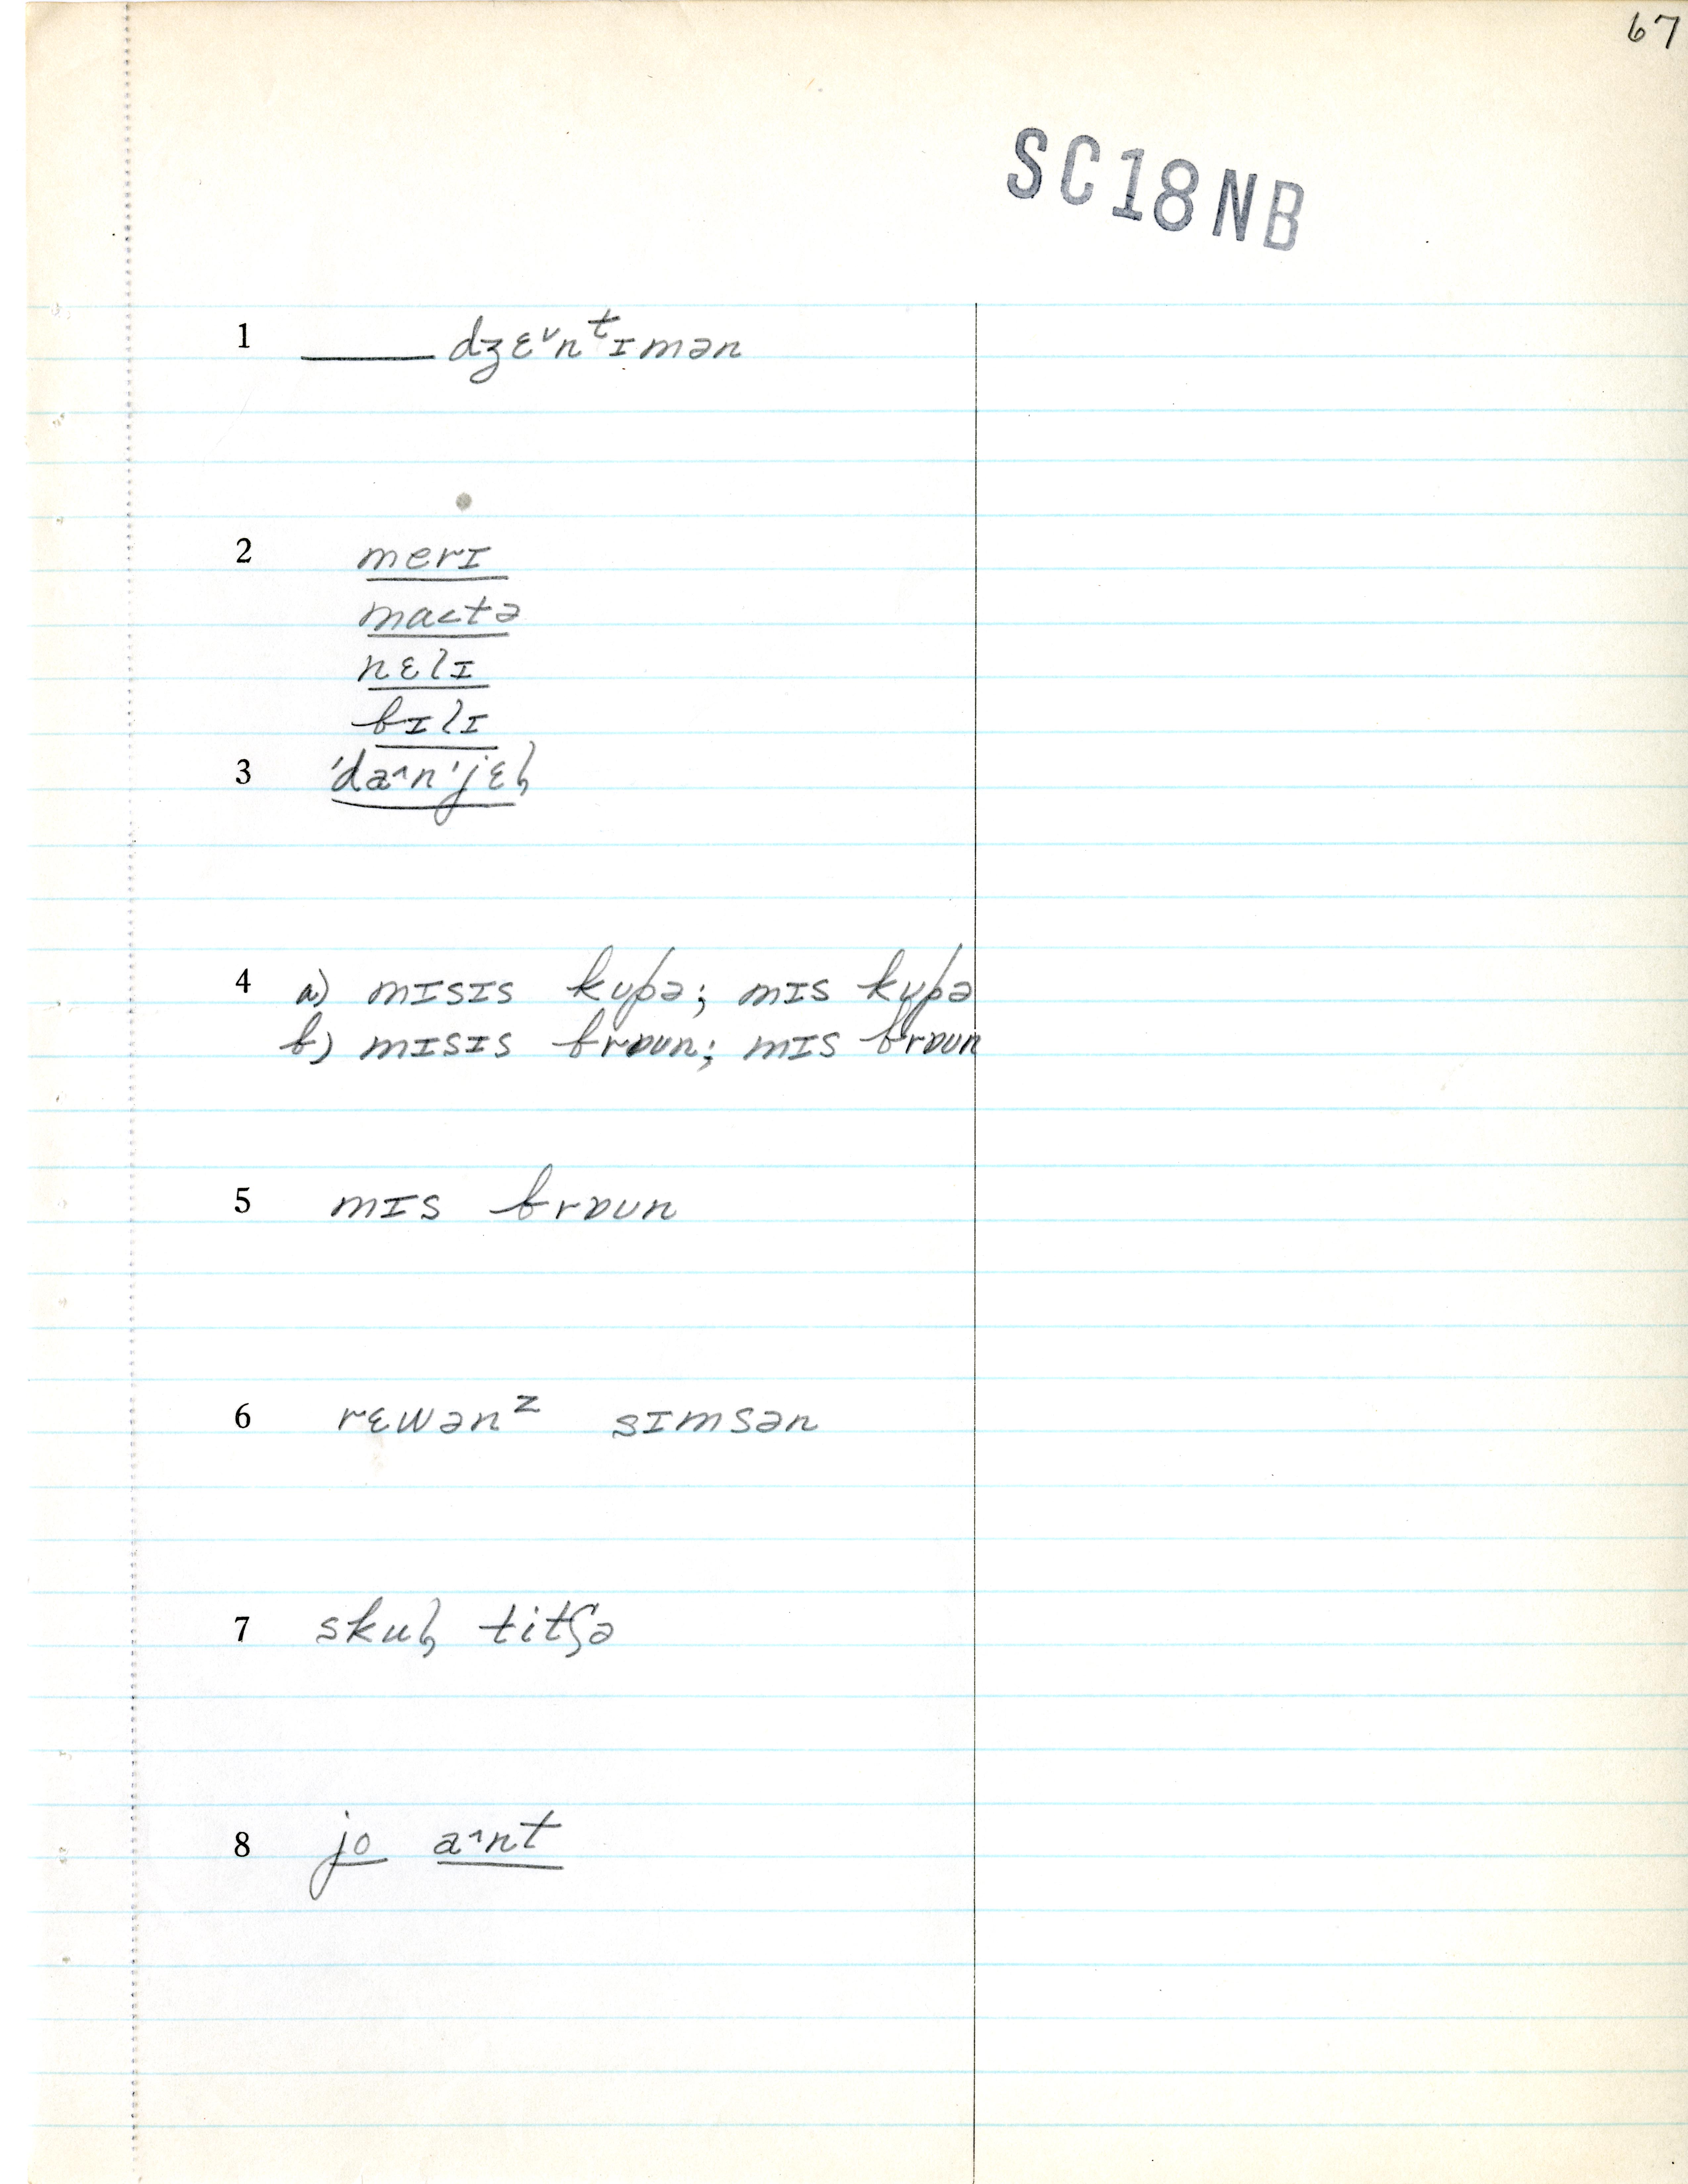 67
SC18NB
1 ____ dʒɛ˅nᵗɪmən
2 merɪ
ma<tə
nɛlɪ
bɪlɪ
3 'da˄n'jɛɫ̩
4 a) mɪsɪs kupə; mɪs kupə
b) mɪsɪs brɒun; mɪs brɒun
5 mɪs brɒun
6 rɛwənᶻ sɪmsən
7 skul̩ titʃə
8 jo a˄nt